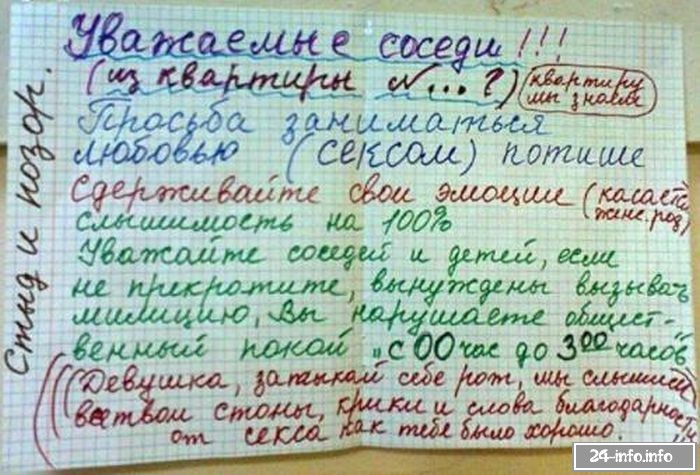 Стыд и позор.
Уважаемые соседи!!!
(из квартиры №...?) (квартиру мы знаем)
Просьба заниматься
любовью (сексом) потише
Сдерживайте свои эмоции (касается
женс. род)
слышимость на 100%
Уважайте соседей и детей, если
не прекратите, вынуждены вызывать
милицию, Вы нарушаете общест-
венный покой „с 00 час до 3 00 часов"
(((Девушка, затыкай себе рот, мы слышим
все твои стоны, крики и слова благодарности
от секса как тебе было хорошо.
24-info.info